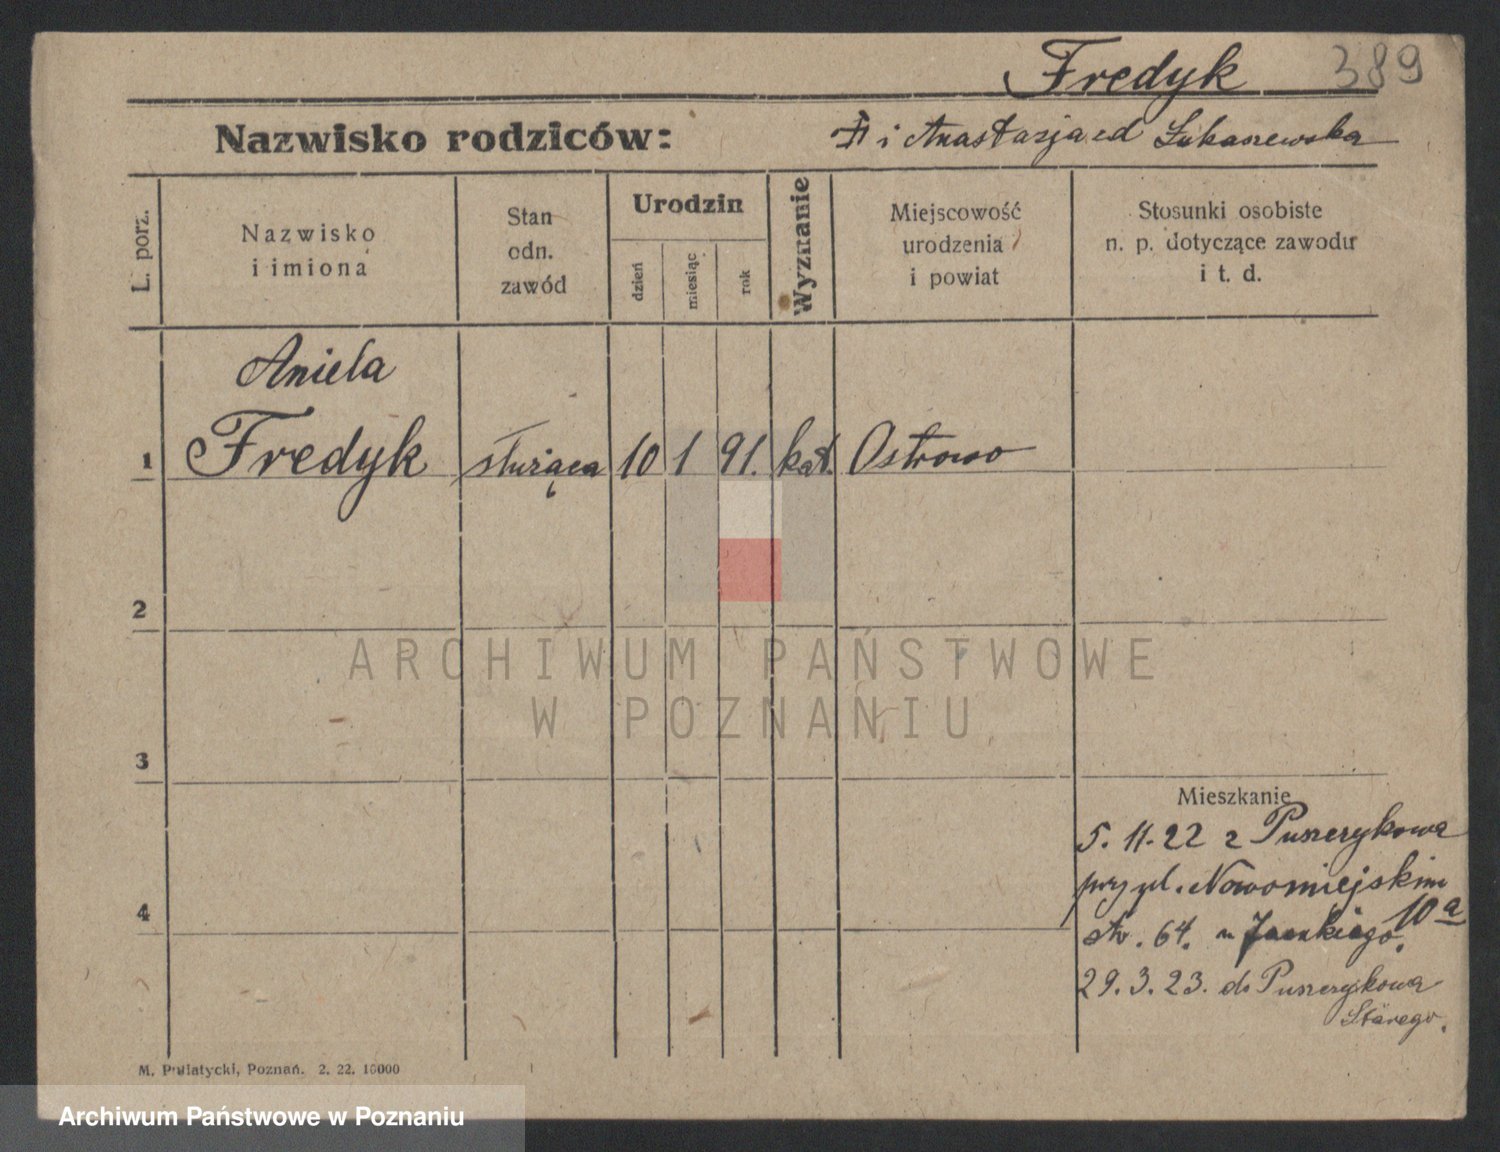 Fredyk 389
Nazwisko rodziców: i Anastazja Łukaszewska
L. porz.
Nazwisko
i imiona
Stan
odn.
zawód
Urodzin
dzień
miesiąc
rok
Wyznanie
Miejscowość
urodzenia
i powiat
Stosunki osobiste
n. p. dotyczące zawodu
i t. d.
Aniela
1 Fredyk służąca 10 1 91. kat. Ostrowo
2
3
4
Mieszkanie
5. 11. 22 z Puszczykowa
przy ul. Nowomiejskim
str. 64. u 10a
29. 3. 23. do Puszczykowa
Starego.
M. Putiatycki, Poznań. 2. 22. 10000
ARCHIWUM PAŃSTWOWE
W POZNANIU
Archiwum Państwowe w Poznaniu